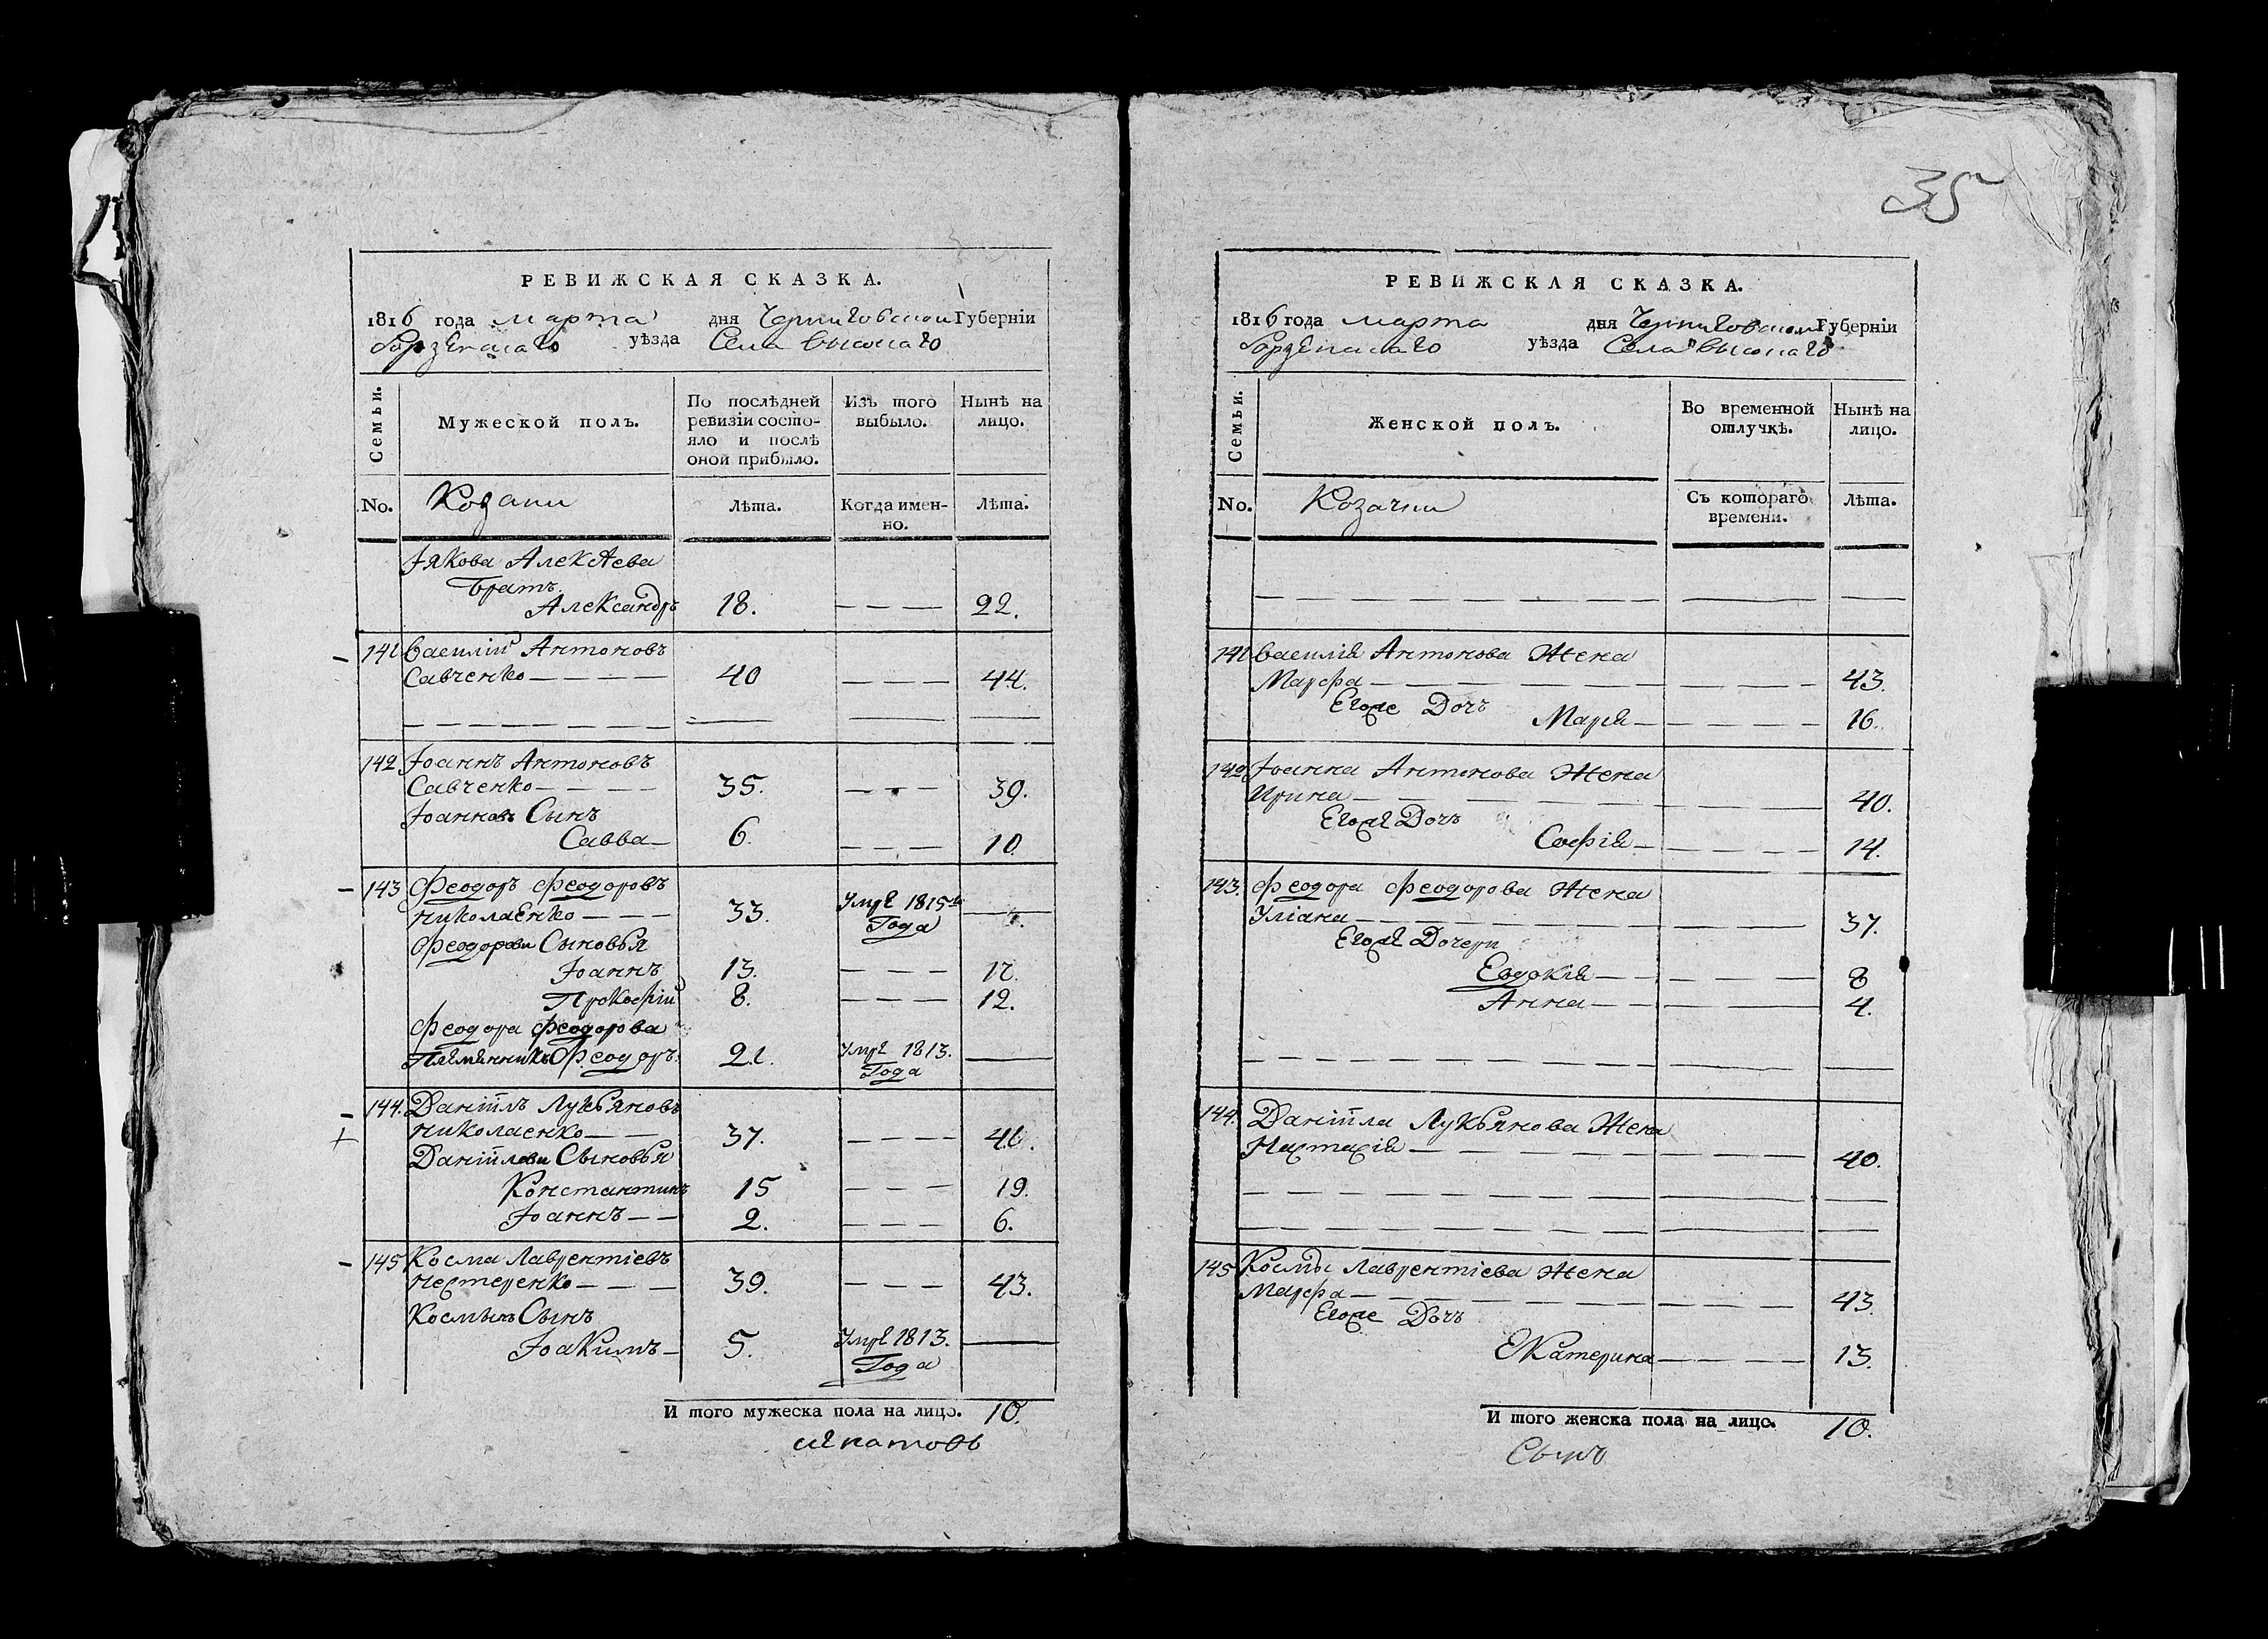 РЕВИЖСКАЯ СКАЗКА.
1816 года марта дня Черниговской Губерніи
Борзенскаго уѣзда Села Высокаго
Семьи.
Мужеской полъ.
По послѣдней ревизіи состо-
яло и послѣ
оной прибыло.
Изъ того
выбыло.
Нынѣ на
лицо.
No. Козаки
Лѣта.
Когда имен-
но.
Лѣта.
Іякова Алексѣева
Братъ
Александръ 18. 22.
141 Василій Антоновъ
Савченко 40 44.
142 Іоаннъ Антоновъ
Савченко 35. 39.
Іоанновъ Сынъ
Савва 6. 10.
143 Феодоръ Феодоровъ
Николаенко 33. Умре 1815го
Года
Феодоровы Сыновья
Іоаннъ 13. 17.
Прокофій 8. 12.
Феодора Феодорова
Племянникъ Феодоръ 21. Умре 1813.
Года
144. Даніилъ Лукьяновъ
Николаенко 37. 41.
Даніиловы Сыновья
Константинъ 15 19.
Іоаннъ 2. 6.
145 Косма Лаврентіевъ
Нестеренко 39. 43.
Космынъ Сынъ
Іоакимъ 5. Умре 1813.
Года
И того мужеска пола на лицо. 10.
35
РЕВИЖСКАЯ СКАЗКА.
1816 года марта дня Черниговской Губерніи
Борзенскаго уѣзда Села Высокаго
Семьи.
Женской полъ.
Во временной
отлучкѣ.
Нынѣ на
лицо.
No. Козачки
Съ котораго
времени.
Лѣта.
141 Василія Антонова Жена
Марфа 43.
Егоже Дочь
Марія 16.
142 Іоанна Антонова Жена
Ирина 40.
Егоже Дочь
Софія 14.
143. Феодора Феодорова Жена
Уліана 37.
Егоже Дочери
Евдокія 8
Анна 4.
144. Даніила Лукьянова Жена
Настасія 40.
145 Космы Лаврентіева Жена
Марфа 43.
Егоже Дочь
Екатерина 13.
И того женска пола на лицо. 10.